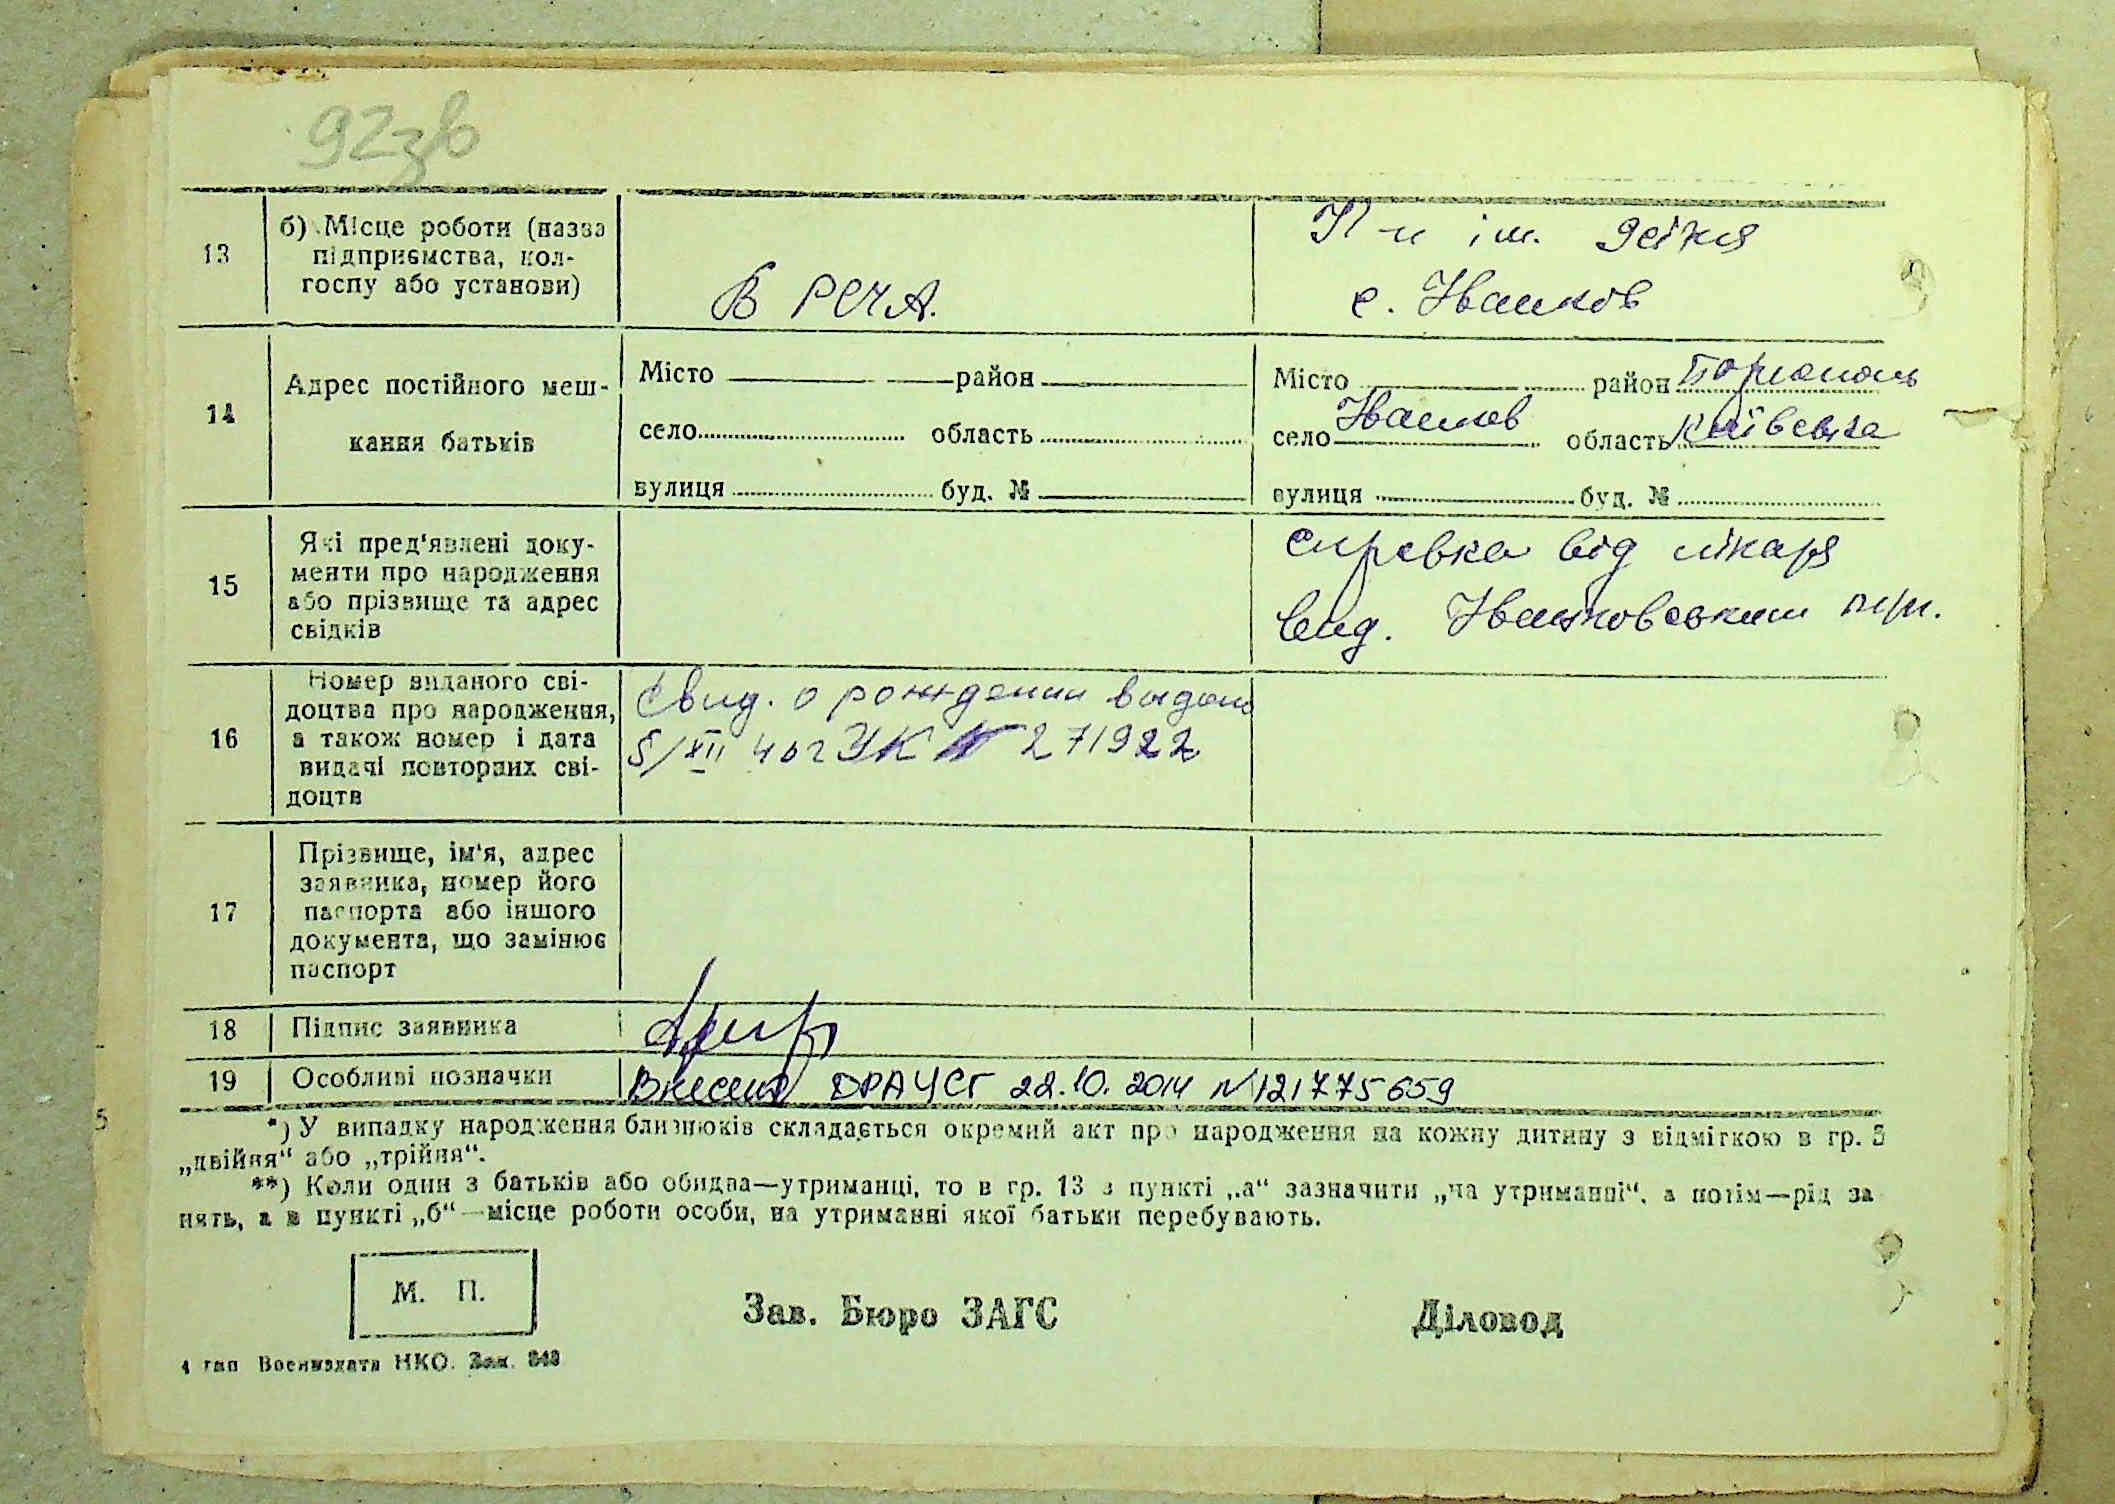 92зв
13
б) Місце роботи (назва
підприємства, кол-
госпу або установи)
В РСЧА.
К-п ім.
с. Іванков
14
Адрес постійного меш-
кання батьків
Місто район
село область
вулиця буд. №
Місто район Бориспіль
село Іванков область Київська
вулиця буд. №
15
Які пред'явлені доку-
менти про народження
або прізвище та адрес
свідків
справка від лікаря
вид. Іванковським
16
Номер виданого сві-
доцтва про народження,
а також номер і дата
видачі повторних сві-
доцтв
Свид. о рождении выдано
5/XII 40г УК № 271922
17
Прізвище, ім'я, адрес
заявника, номер його
паспорта або іншого
документа, що замінює
паспорт
18
Підпис заявника
19
Особливі позначки
Внесено ДРАЦСГ 22.10.2014 №121775659
*) У випадку народження близнюків складається окремий акт про народження на кожну дитину з відміткою в гр. 5
„двійня“ або „трійня“.
**) Коли один з батьків або обидва—утриманці, то в гр. 13 з пункті „а“ зазначити „на утриманні“, а потім—рід за
нять, а в пункті „б“—місце роботи особи, на утриманні якої батьки перебувають.
М. П.
Зав. Бюро ЗАГС
Діловод
4 тип Воениздата НКО. Зак. 343